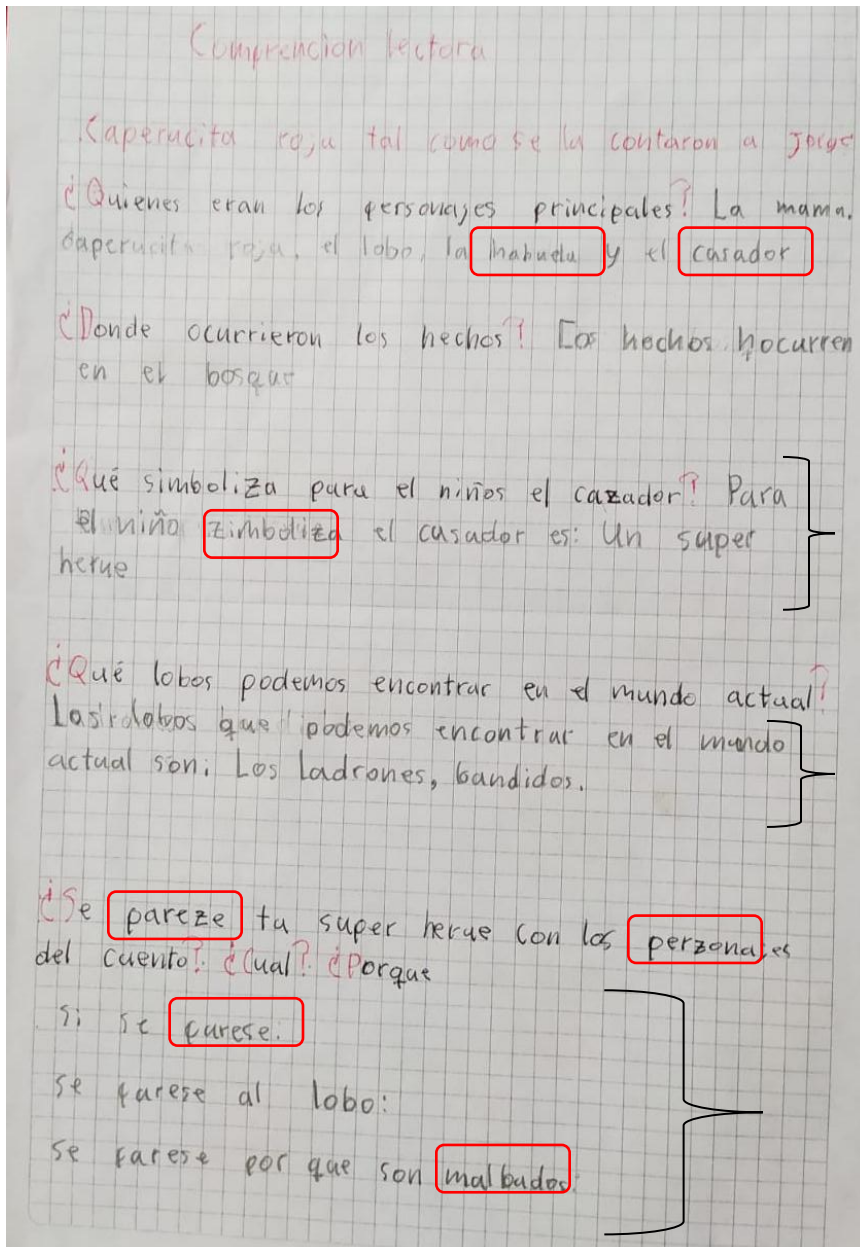 Comprencion lectora
Caperucita roja tal como se la contaron a Jorge
¿Quienes eran los personajes principales? La mama,
Caperucita roja, el lobo, la habuela y el casador
¿Donde ocurrieron los hechos? Los hechos hocurren
en el bosque
¿Qué simboliza para el niños el cazador? Para
el niño zimboliza el casador es: Un super
herue
¿Qué lobos podemos encontrar en el mundo actual?
lobos que podemos encontrar en el mundo
actual son: Los ladrones, bandidos.
¿Se pareze tu super herue con los perzonajes
del cuento? ¿Cual? ¿Porque
si se parese.
se parese al lobo:
se parese por que son malbados.